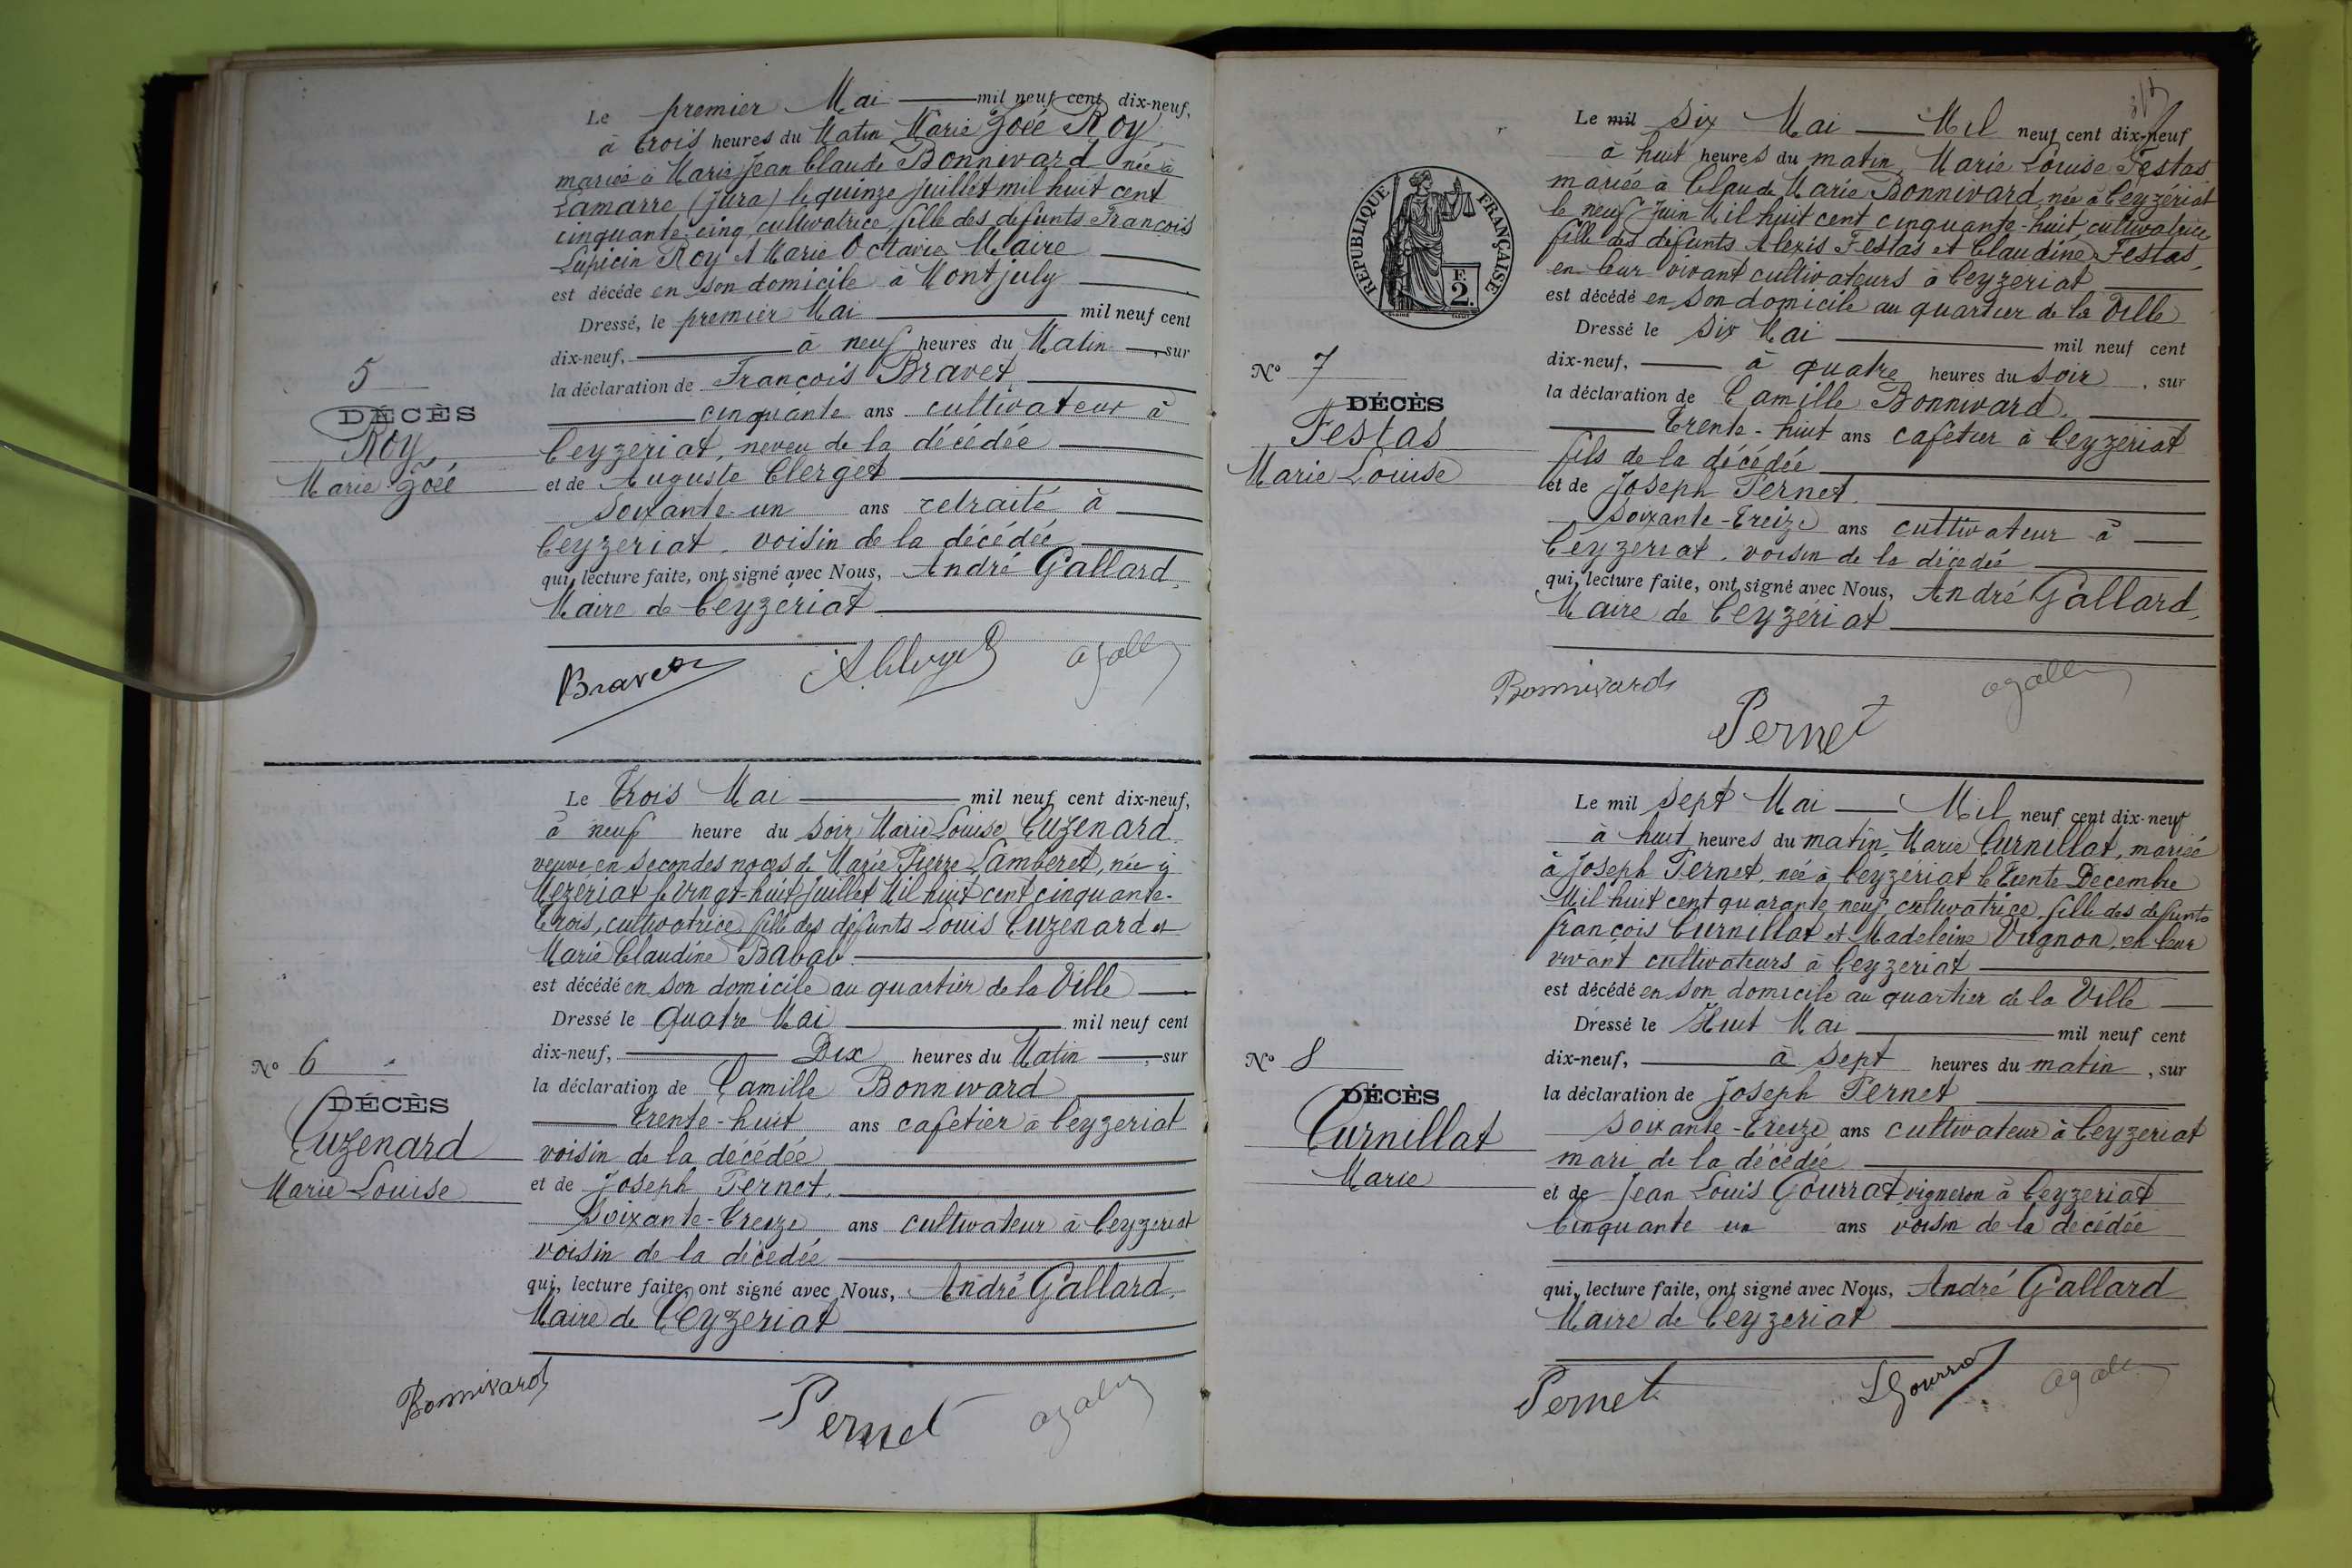 Le premier Mai mil neuf cent dix-neuf,
à trois heures du Matin Marie Zoëé Roy
mariée à Marie Jean Claude Bonnivard née à
Lamarre (Jura) le quinze juillet mil huit cent
cinquante-cinq, cultivatrice, fille des defunts François
Lupicin Roy et Marie Octavie Maire
est décédé en son domicile à Montjuly
Dressé, le premier Mai mil neuf cent
dix-neuf, à neuf heures du Matin, sur
la déclaration de François Bravet
cinquante ans cultivateur à
Ceyzeriat, neveu de la décédée
et de Auguste Clerget
Soixante-un ans retraité à
Ceyzeriat, voisin de la décédée
qui, lecture faite, ont signé avec Nous, André Gallard,
Maire de Ceyzériat
5
DÉCÈS
Roy
Marie Zoëé
Bravet A Clerget agall
Le Trois Mai mil neuf cent dix-neuf,
à neuf heure du soir Marie Louise Cuzenard
veuve en secondes noces de Marie Pierre Lamberet, née à
Mezeriat le vingt-huit Juillet Mil huit cent cinquante-
trois, cultivatrice, fille des défunts Louis Cuzenard et
Marie Claudine Babab
est décédé en son domicile au quartier de la Ville
Dressé le quatre Mai mil neuf cent
dix-neuf, Dix heures du Matin, sur
la déclaration de Camille Bonnivard
Trente-huit ans cafetier à Ceyzeriat
voisin de la décédée
et de Joseph Pernet.
Soixante-treize ans cultivateur à Ceyzeriat
voisin de la décedée
qui, lecture faite, ont signé avec Nous, André Gallard,
Maire de Ceyzeriat
No 6
DÉCÈS
Cuzenard
Marie Louise
Bonnivard Pernet agall
Le mil Six Mai Mil neuf cent dix-neuf
à huit heures du matin, Marie Louise Festas
mariée à Claude Marie Bonnivard, née à Ceyzériat
le neuf Juin Mil huit cent cinquante-huit, cultivatrice,
fille des défunts Alexis Festas et Claudine Festas,
en leur vivant cultivateurs à Ceyzeriat
est décédé en son domicile au quartier de la Ville
Dressé le Six Mai mil neuf cent
dix-neuf, à quatre heures du soir, sur
la déclaration de Camille Bonnivard.
Trente-huit ans cafetier à Ceyzeriat
fils de la décédée
et de Joseph Pernet.
Soixante-Treize ans cultivateur à
Ceyzeriat. voisin de la décedée
qui, lecture faite, ont signé avec Nous, André Gallard,
Maire de Ceyzériat
RÉPUBLIQUE FRANÇAISE
F.
2.
No 7
DÉCÈS
Festas
Marie Louise
Bonnivard Pernet agall
Le mil Sept Mai Mil neuf cent dix-neuf
à huit heures du matin, Marie Curnillat, mariée
à Joseph Pernet, née à Ceyzériat le Trente Decembre
Mil huit cent quarante neuf, cultivatrice, fille des defunts
françois Curnillat et Madeleine Vugnon, en leur
vivant cultivateurs à Ceyzeriat
est décédé en son domicile au quartier de la Ville
Dressé le Huit Mai mil neuf cent
dix-neuf, à sept heures du matin, sur
la déclaration de Joseph Pernet
Soixante-Treize ans cultivateur à Ceyzeriat
mari de la décédée
et de Jean Louis Gourrat vigneron à Ceyzeriat
Cinquante un ans voisin de la décédée
qui, lecture faite, ont signé avec Nous, André Gallard
Maire de Ceyzeriat
No 8
DÉCÈS
Curnillat
Marie
Pernet LGourrat agall